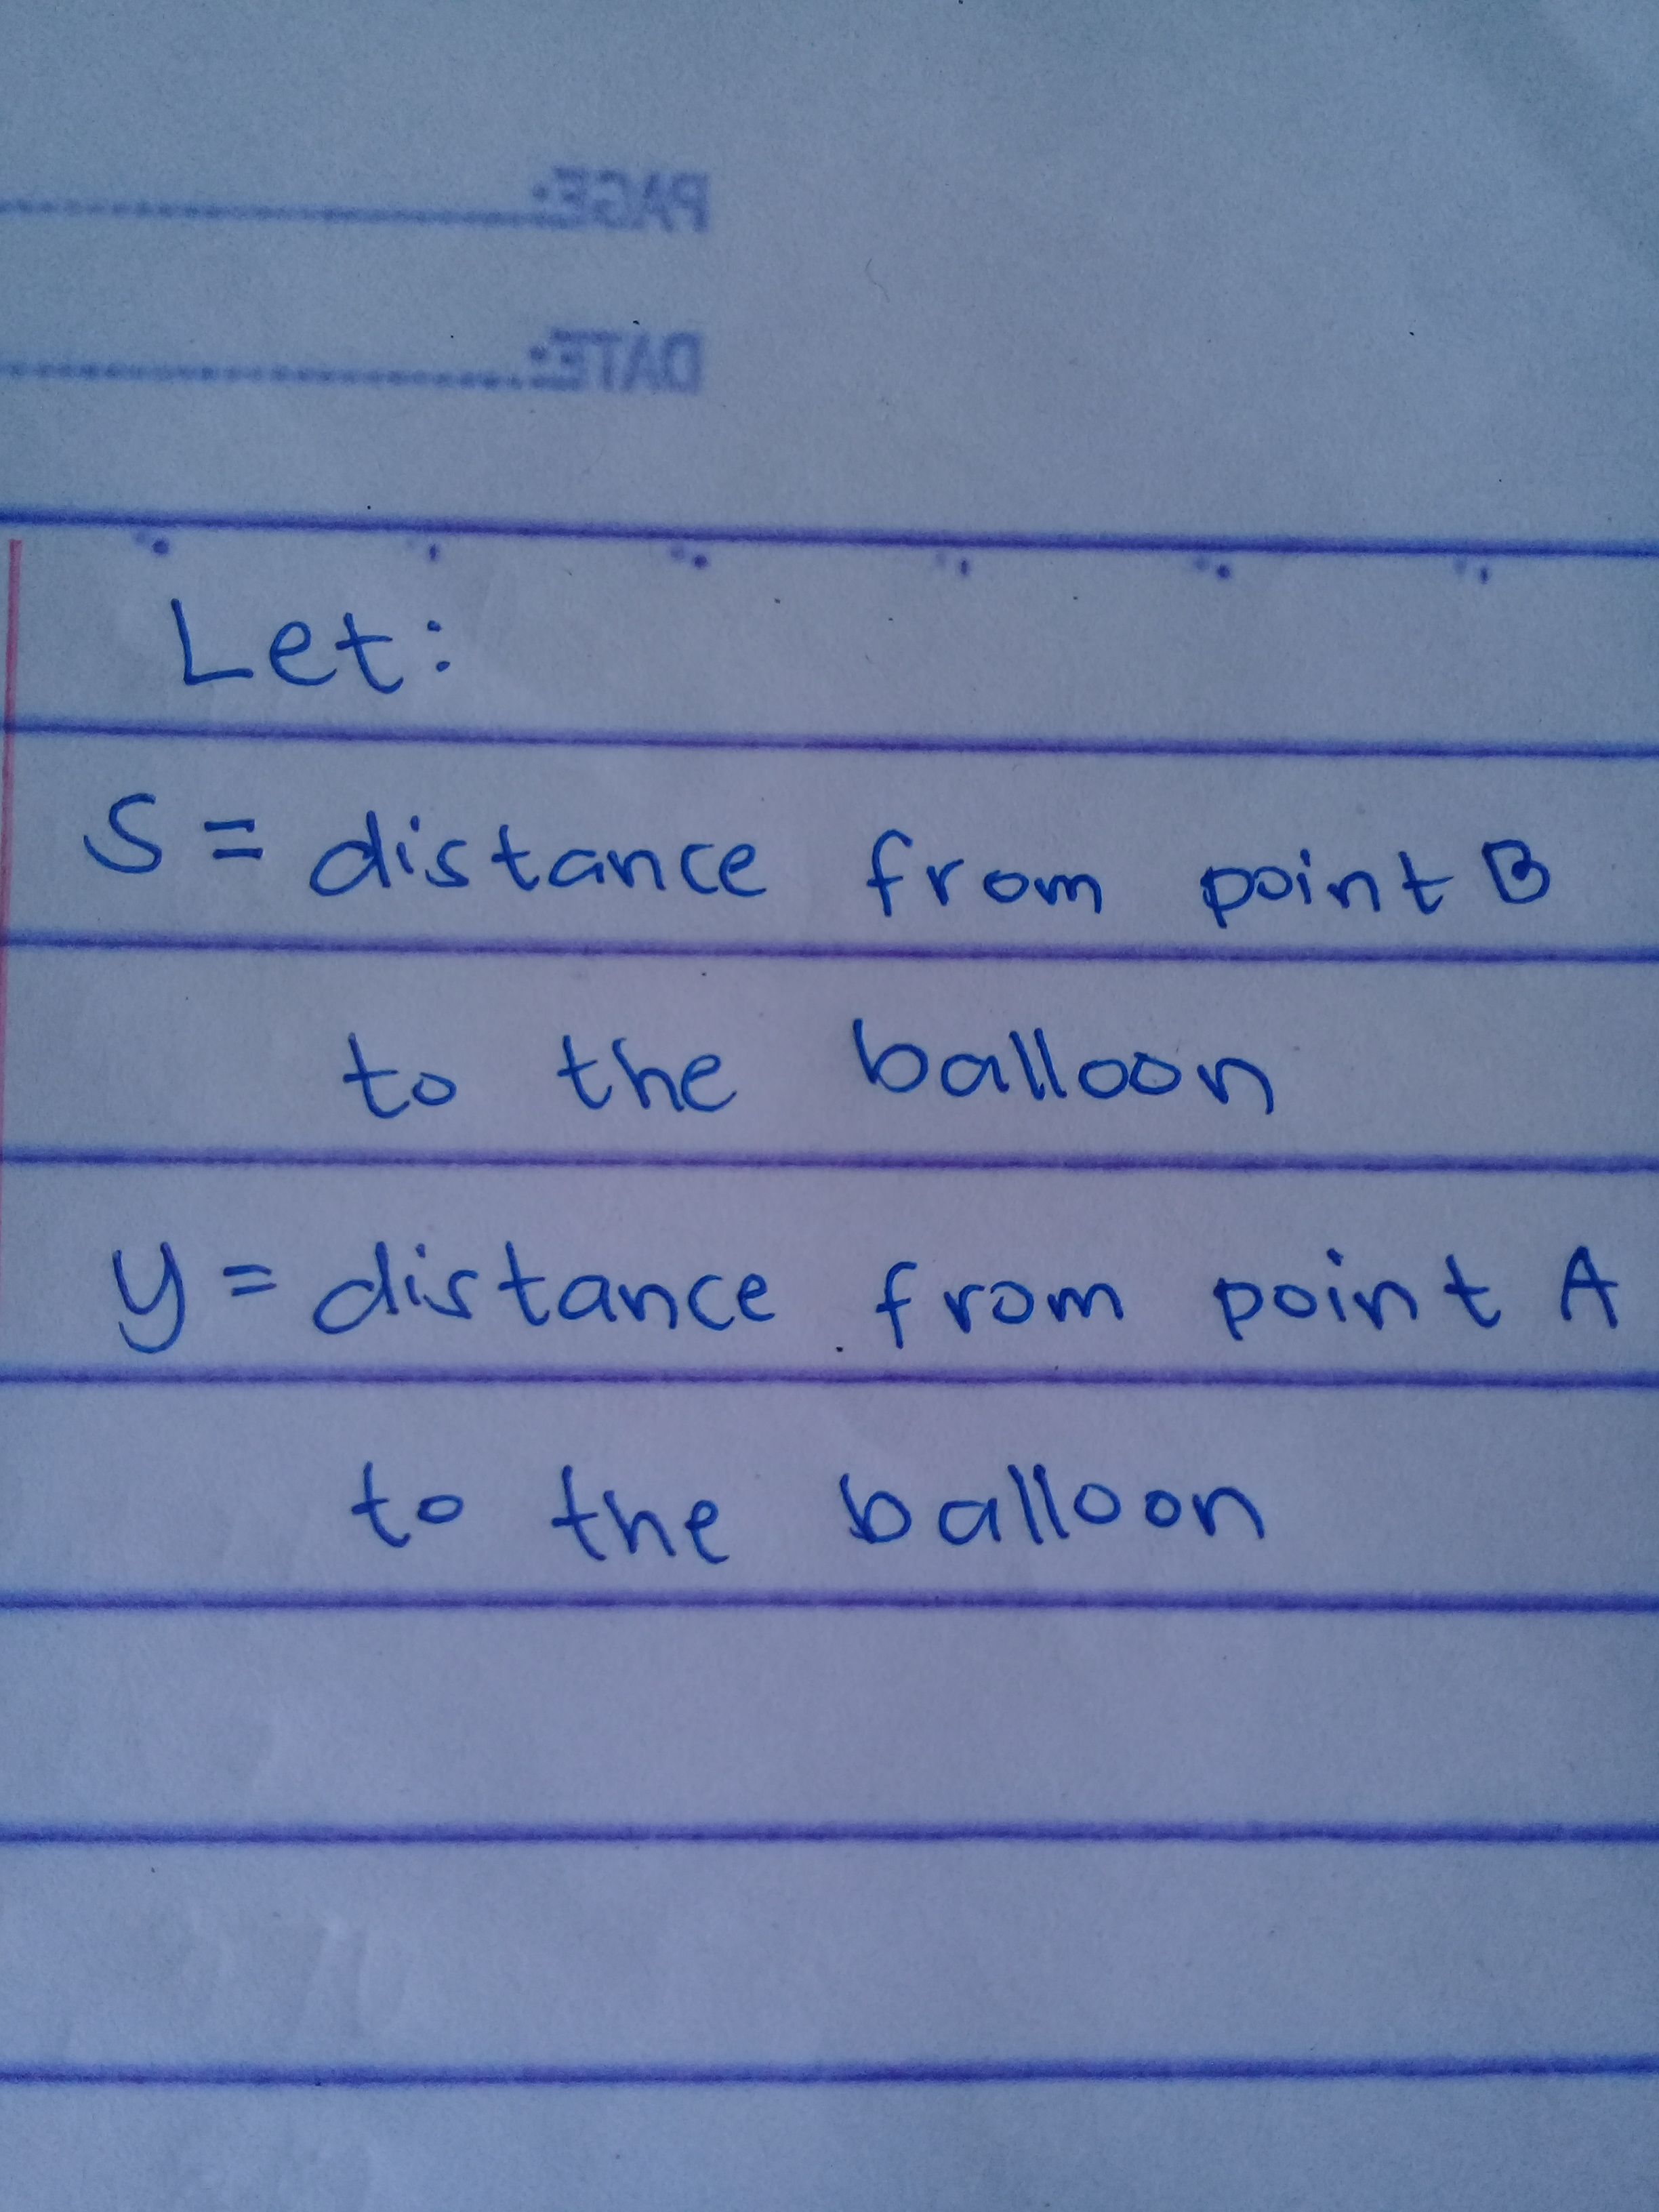 PAGE:
DATE:
Let:
S = distance from point B
to the balloon
y = distance from point A
to the balloon